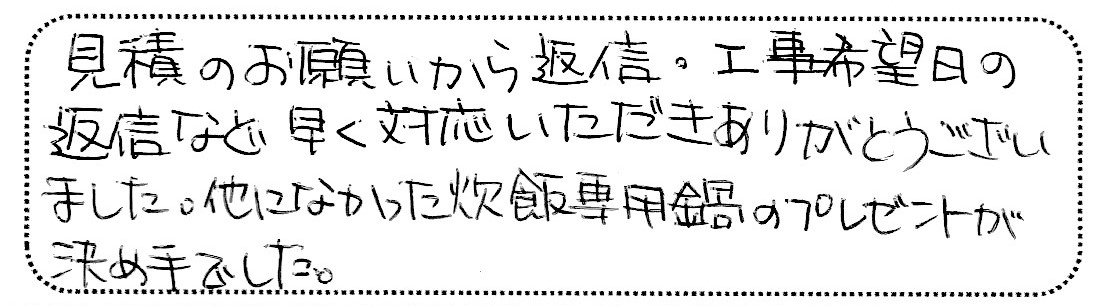 見積のお願いから返信。工事希望日の
返信など早く対応いただきありがとうござい
ました。他になかった炊飯専用鍋のプレゼントが
決め手でした。